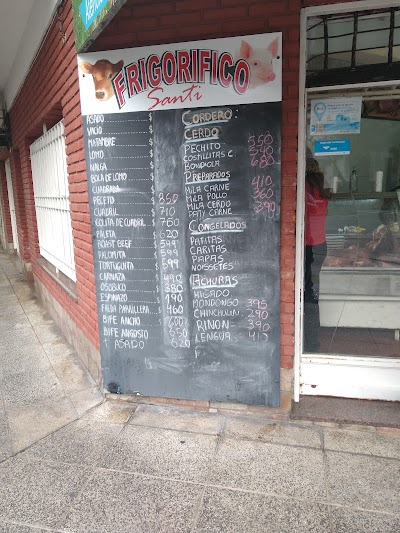 FRIGORIFICO
Santi
ASADO $
VACIO $
MATAMBRE $
LOMO $
NALGA $
BOLA DE LOMO $
CUADRADA $
PECETO $ 850
CUADRIL $ 710
COLITA DE CUADRIL $ 760
PALETA $ 620
ROAST BEEF $ 599
PALOMITA $ 599
TORTUGUITA $ 599
CARNAZA $ 490
OSOBUCO $ 380
ESPINAZO $ 190
FALDA PARRILLERA $ 460
BIFE ANCHO $ 600
BIFE ANGOSTO $ 650
" ASADO $ 620
CORDERO
CERDO
PECHITO 550
COSTILLITAS C. 540
BONDIOLA 680
PREPARADOS
MILA CARNE 410
MILA POLLO 360
MILA CERDO
PATY CARNE 390
CONGELADOS
PATITAS
CARITAS
PAPAS
NOISSETES
ACHURAS
HIGADO
MONDONGO 395
CHINCHULIN 290
RIÑON 390
LENGUA 410